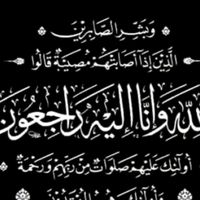 وَبَشِّرِ الصَّابِرِيْنَ
الَّذِيْنَ إِذَا أَصَابَتْهُمْ مُصِيْبَةٌ قَالُوا
للهِ وَإِنَّا إِلَيْهِ رَاجِعُونَ
أُولَئِكَ عَلَيْهِمْ صَلَوَاتٌ مِنْ رَبِّهِمْ وَرَحْمَةٌ
وَأُولَئِكَ هُمُ الْمُهْتَدُونَ